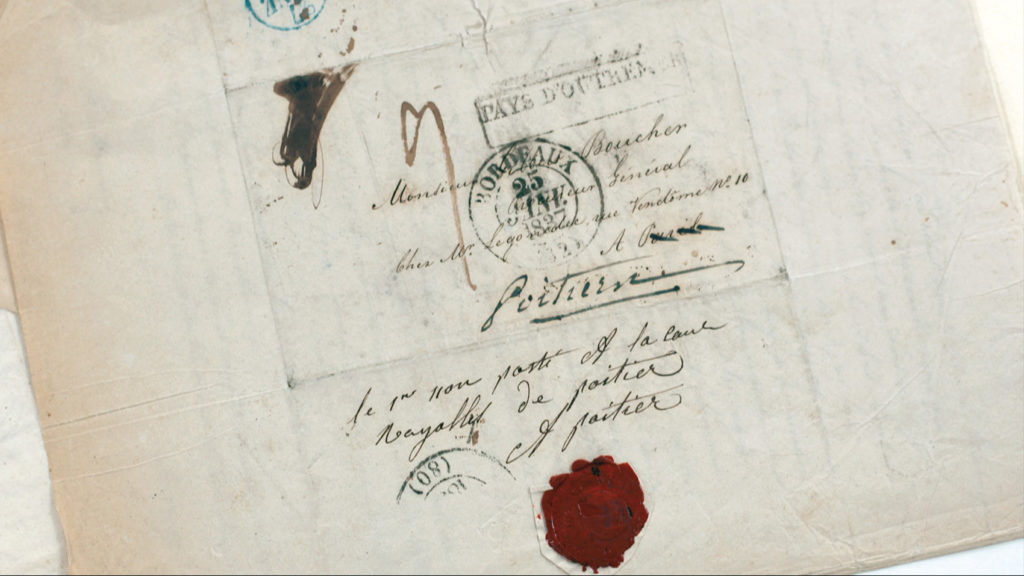 PAYS D'OUTREMER
7
BORDEAUX
25
1837
Monsieur Boucher
Général
Chez Mr. rue Vendôme No. 10
A Paris
Poitiers
le 1er non posté A la cour
Rayalle de poitier
A poitier
(80)